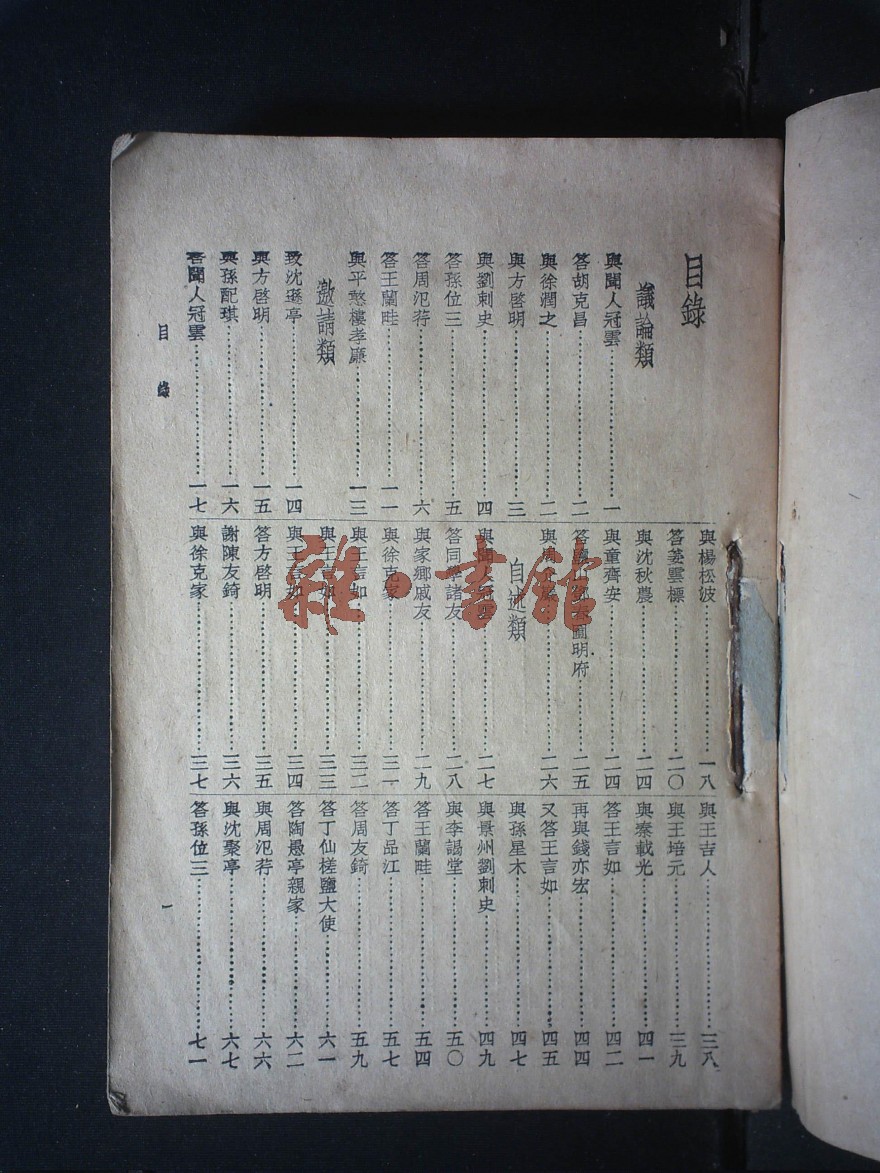 目錄
議論類
與聞人冠雲………一
答胡克昌………二
與徐潤之………二
與方啓明………三
與劉刺史………四
答孫位三………五
答周氾荇………六
答王蘭畦………一一
與平憨樓孝廉………一三
邀請類
致沈遜亭………一四
與方啓明………一五
與孫配琪………一六
答聞人冠雲………一七
與楊松波………一八
答姜雲標………二〇
與沈秋農………二四
與童齊安………二四
答 山 圃明府………二五
與 ………二六
自述類
與聞人冠雲………二七
答同學諸友………二八
與家鄉戚友………二九
與徐克家………三一
與王言如………三二
與王言如………三三
與王言如………三四
答方啓明………三五
謝陳友錡………三六
與徐克家………三七
與王吉人………三八
與王培元………三九
與秦載光………四一
答王言如………四二
再與錢亦宏………四四
又答王言如………四五
與孫星木………四七
與景州劉刺史………四九
與李謁堂………五〇
答王蘭畦………五四
答丁品江………五七
答周友錡………五九
答丁仙槎鹽大使………六一
答陶愚亭親家………六二
與周氾荇………六六
與沈聚亭………六七
答孫位三………七一
目錄
一
雜·書館